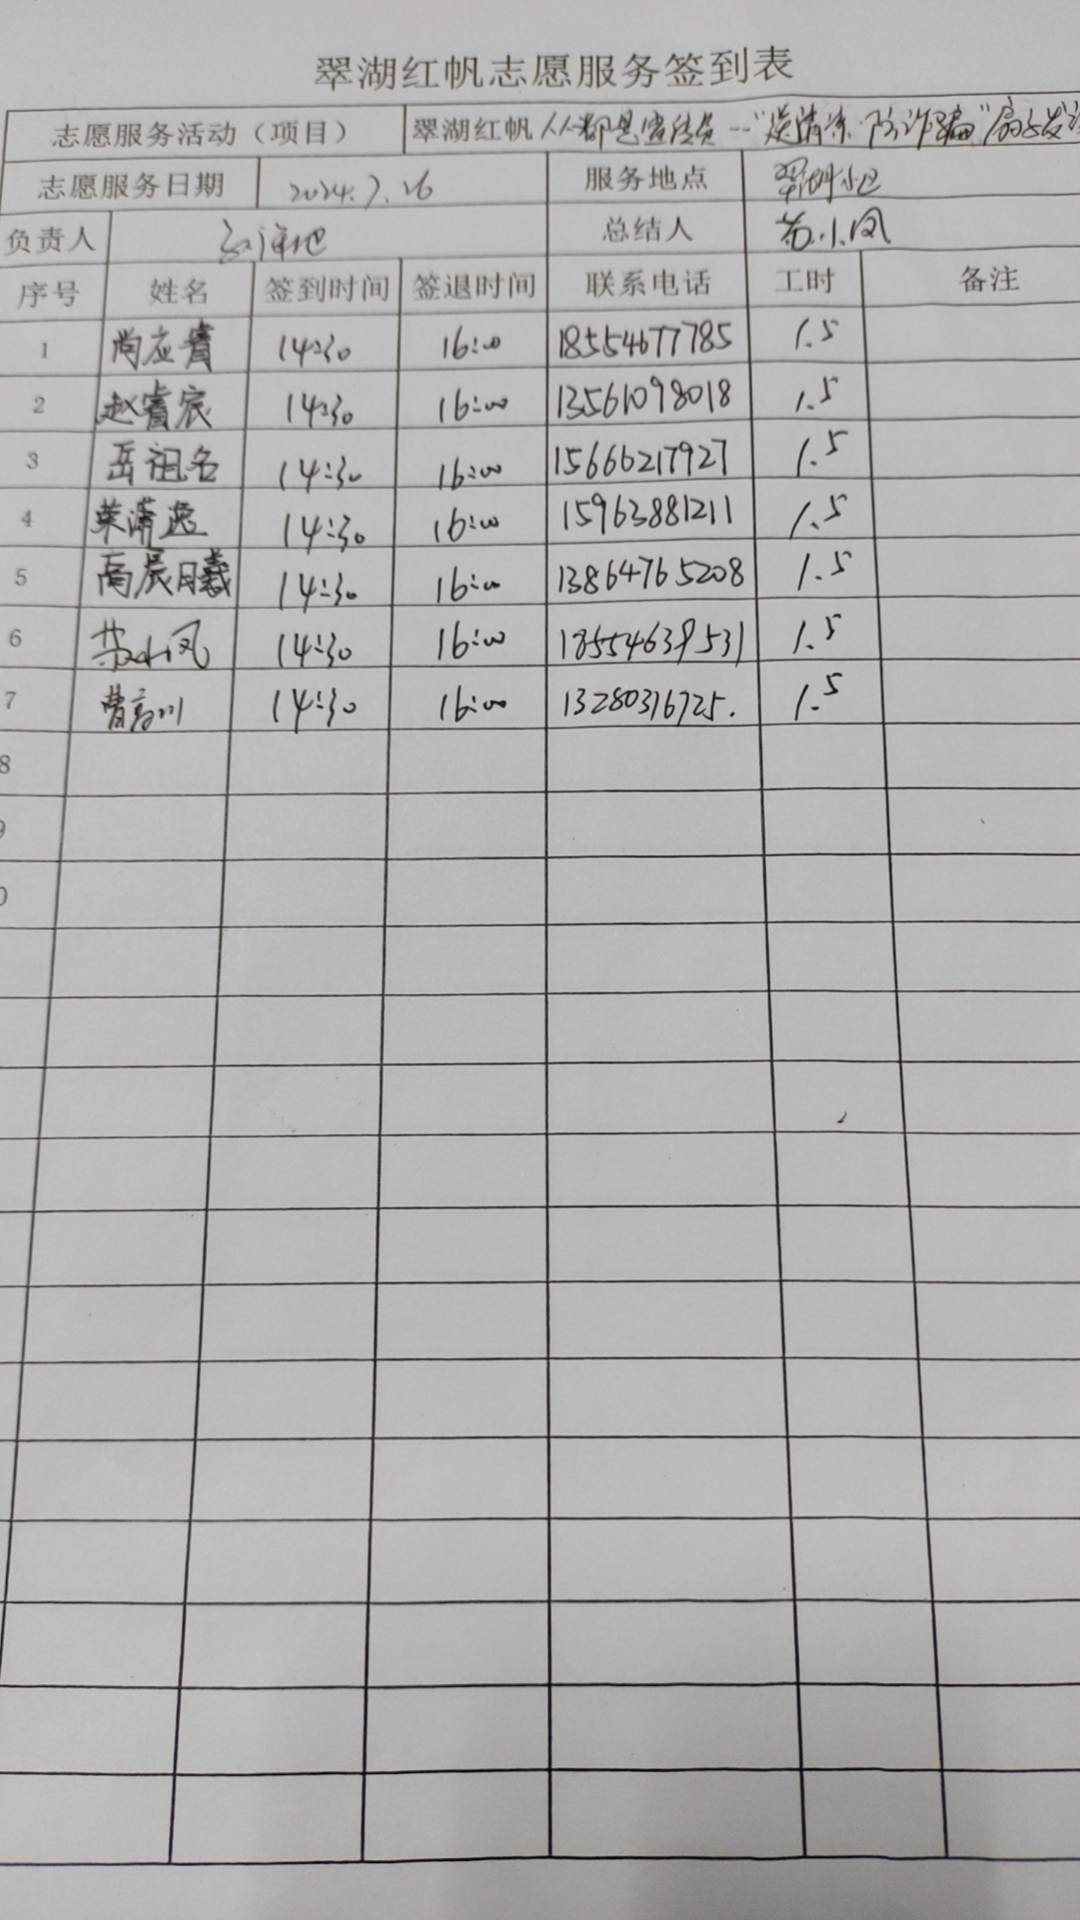 翠湖红帆志愿服务签到表
志愿服务活动（项目） 翠湖红帆 人人都是宣传员--"送清凉 防诈骗"扇子发
志愿服务日期 2024.7.26 服务地点 翠湖小区
负责人 总结人 苏小凤
序号 姓名 签到时间 签退时间 联系电话 工时 备注
1 尚应睿 14:30 16:00 18554677785 1.5
2 赵睿宸 14:30 16:00 13561098018 1.5
3 岳祖名 14:30 16:00 15666217927 1.5
4 荣潇逸 14:30 16:00 15963881211 1.5
5 高晨曦 14:30 16:00 13864765208 1.5
6 苏小凤 14:30 16:00 18554639531 1.5
7 14:30 16:00 13280376725. 1.5
8